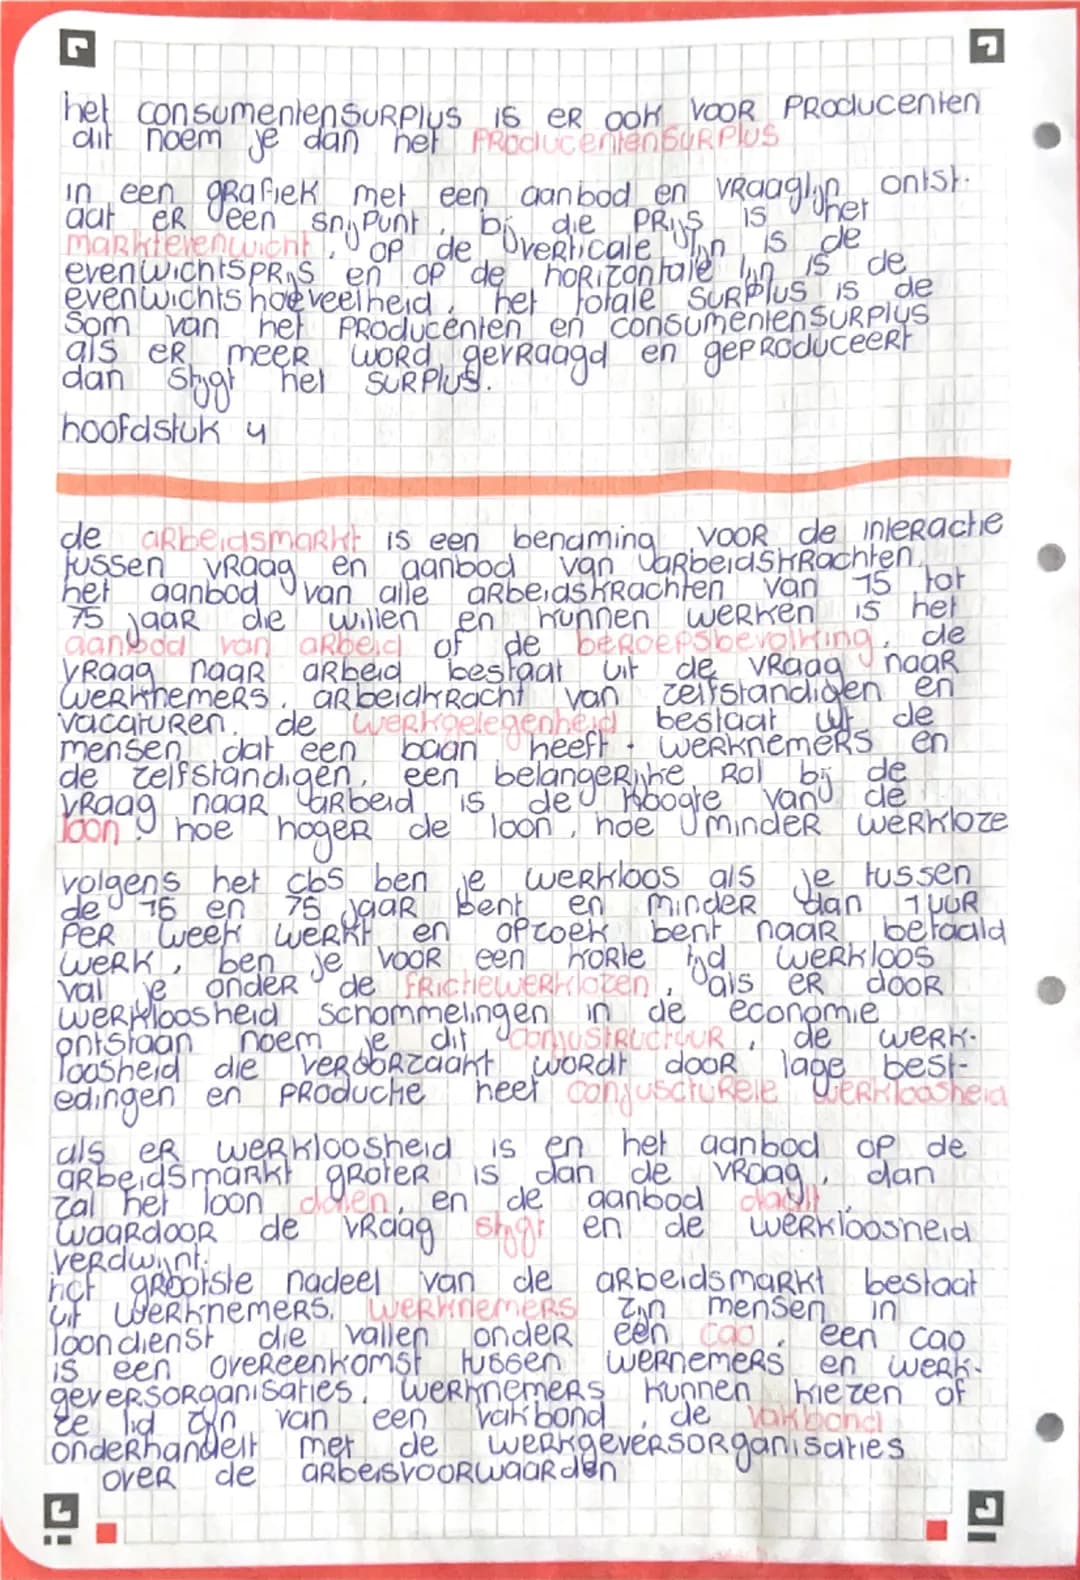 het consumentensurplus is er ook voor producenten
dit noem je dan het producentensurplus
in een grafiek met een aanbod en vraaglijn ontst-
aat er een snijpunt, bij die prijs is het
marktevenwicht. op de verticale lijn is de
evenwichtsprijs en op de horizontale lijn is de
evenwichtshoeveelheid. het totale surplus is de
som van het producenten en consumentensurplus
als er meer word gevraagd en geproduceert
dan stijgt het surplus.
hoofdstuk 4
de arbeidsmarkt is een benaming voor de interactie
tussen vraag en aanbod van arbeidskrachten.
het aanbod van alle arbeidskrachten van 15 tot
75 jaar die willen en kunnen werken is het
aanbod van arbeid of de beroepsbevolking. de
vraag naar arbeid bestaat uit de vraag naar
werknemers, arbeidkracht van zelfstandigen en
vacaturen. de werkgelegenheid bestaat uit de
mensen dat een baan heeft. werknemers en
de zelfstandigen. een belangerijke rol bij de
vraag naar arbeid is de hoogte van de
loon. hoe hoger de loon, hoe minder werkloze
volgens het cbs ben je werkloos als je tussen
de 15 en 75 jaar bent en minder dan 1 uur
per week werkt en opzoek bent naar betaald
werk, ben je voor een korte tijd werkloos
val je onder de frictiewerklozen, als er door
werkloosheid schommelingen in de economie
ontstaan noem je dit conjustructuur, de werk-
loosheid die veroorzaakt wordt door lage best-
edingen en productie heet conjuscturele werkloosheid
als er werkloosheid is en het aanbod op de
arbeidsmarkt groter is dan de vraag, dan
zal het loon dalen, en de aanbod daalt,
waardoor de vraag stijgt en de werkloosheid
verdwijnt.
het grootste nadeel van de arbeidsmarkt bestaat
uit werknemers. werknemers zijn mensen in
loondienst die vallen onder een cao. een cao
is een overeenkomst tussen wernemers en werk-
geversorganisaties. werknemers kunnen kiezen of
ze lid zijn van een vakbond, de vakbond
onderhandelt met de werkgeversorganisaties
over de arbeisvoorwaarden